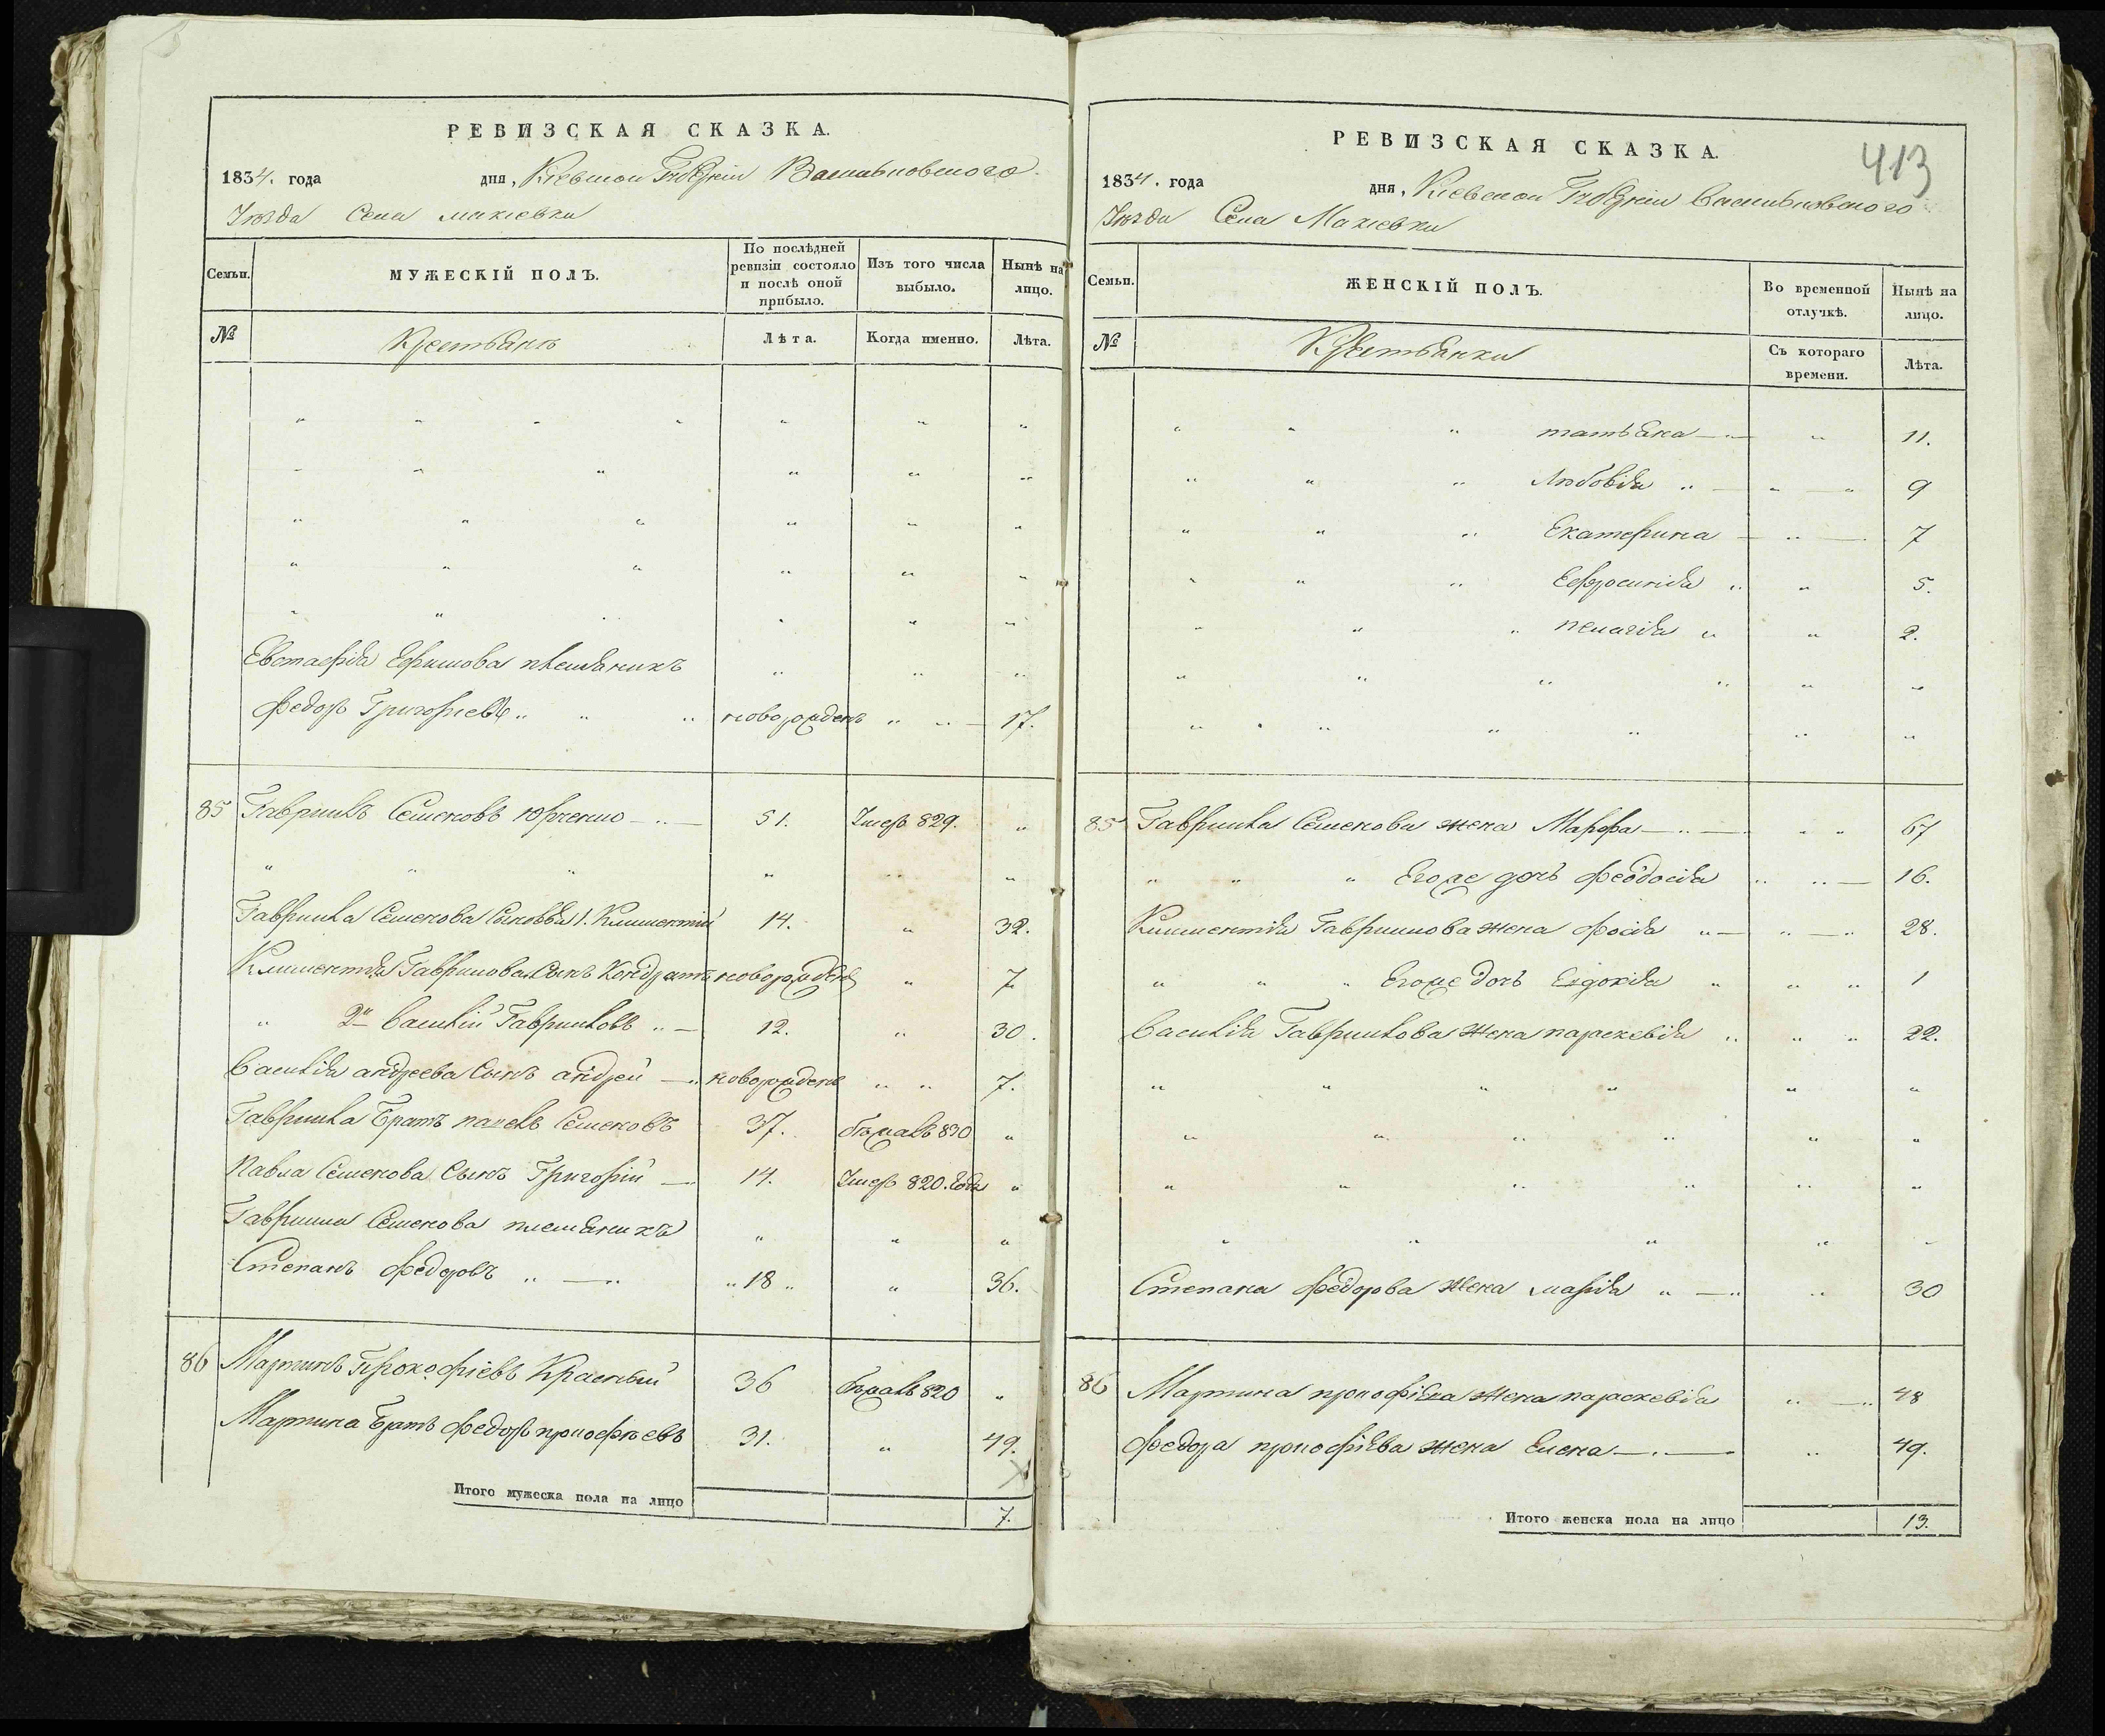 РЕВИЗСКАЯ СКАЗКА.
1834. года дня, Кіевской Губерніи Васильковского
Уѣзда Села Макіевки
Семьи. МУЖЕСКІЙ ПОЛЪ. По послѣдней ревизіи состояло и послѣ оной прибыло. Изъ того числа выбыло. Нынѣ на лицо.
№ Крестьянъ Лѣта. Когда именно. Лѣта.
Евстафія Ефимова племяникъ
Федоръ Григорьевъ новорожденъ 17.
85 Гавриилъ Семеновъ Юрченко 51. Умеръ 829.
Гаврила Семенова Сыновья 1. Климентій 14. 32.
Климентія Гаврилова Сынъ Кондратъ новорожденъ 7
2й Василій Гавриловъ 12. 30.
Василія андреева Сынъ андрей новорожденъ 7.
Гаврила Братъ павелъ Семеновъ 37. бѣжалъ 830
Павла Семенова Сынъ Григорій 14. Умеръ 820. Года
Гаврила Семенова племяникъ
Степанъ Федоровъ 18 36.
86 Мартинъ Прокофіевъ Красный 36 бѣжалъ 820
Мартина Братъ Федоръ прокофьевъ 31. 49.
Итого мужеска пола на лицо 7.
413
РЕВИЗСКАЯ СКАЗКА.
1834. года дня, Кіевской Губерніи Васильковского
Уѣзда Села Макіевки
Семьи. ЖЕНСКІЙ ПОЛЪ. Во временной отлучкѣ. Нынѣ на лицо.
№ Крестьянки Съ котораго времени. Лѣта.
татьяна 11.
Любовія 9
Екатерина 7
Ефросинія 5.
пелагія 2.
85 Гаврила Семенова жена Марфа 67
Егоже дочь феодосія 16.
Климентія Гаврилова жена фосія 28.
Егоже дочь Евдокія 1
Василія Гаврилова жена параскевія 22.
Степана Федорова жена марія 30
86 Мартина прокофіева жена параскевія 48
Федора прокофіева жена Елена 49.
Итого женска пола на лицо 13.